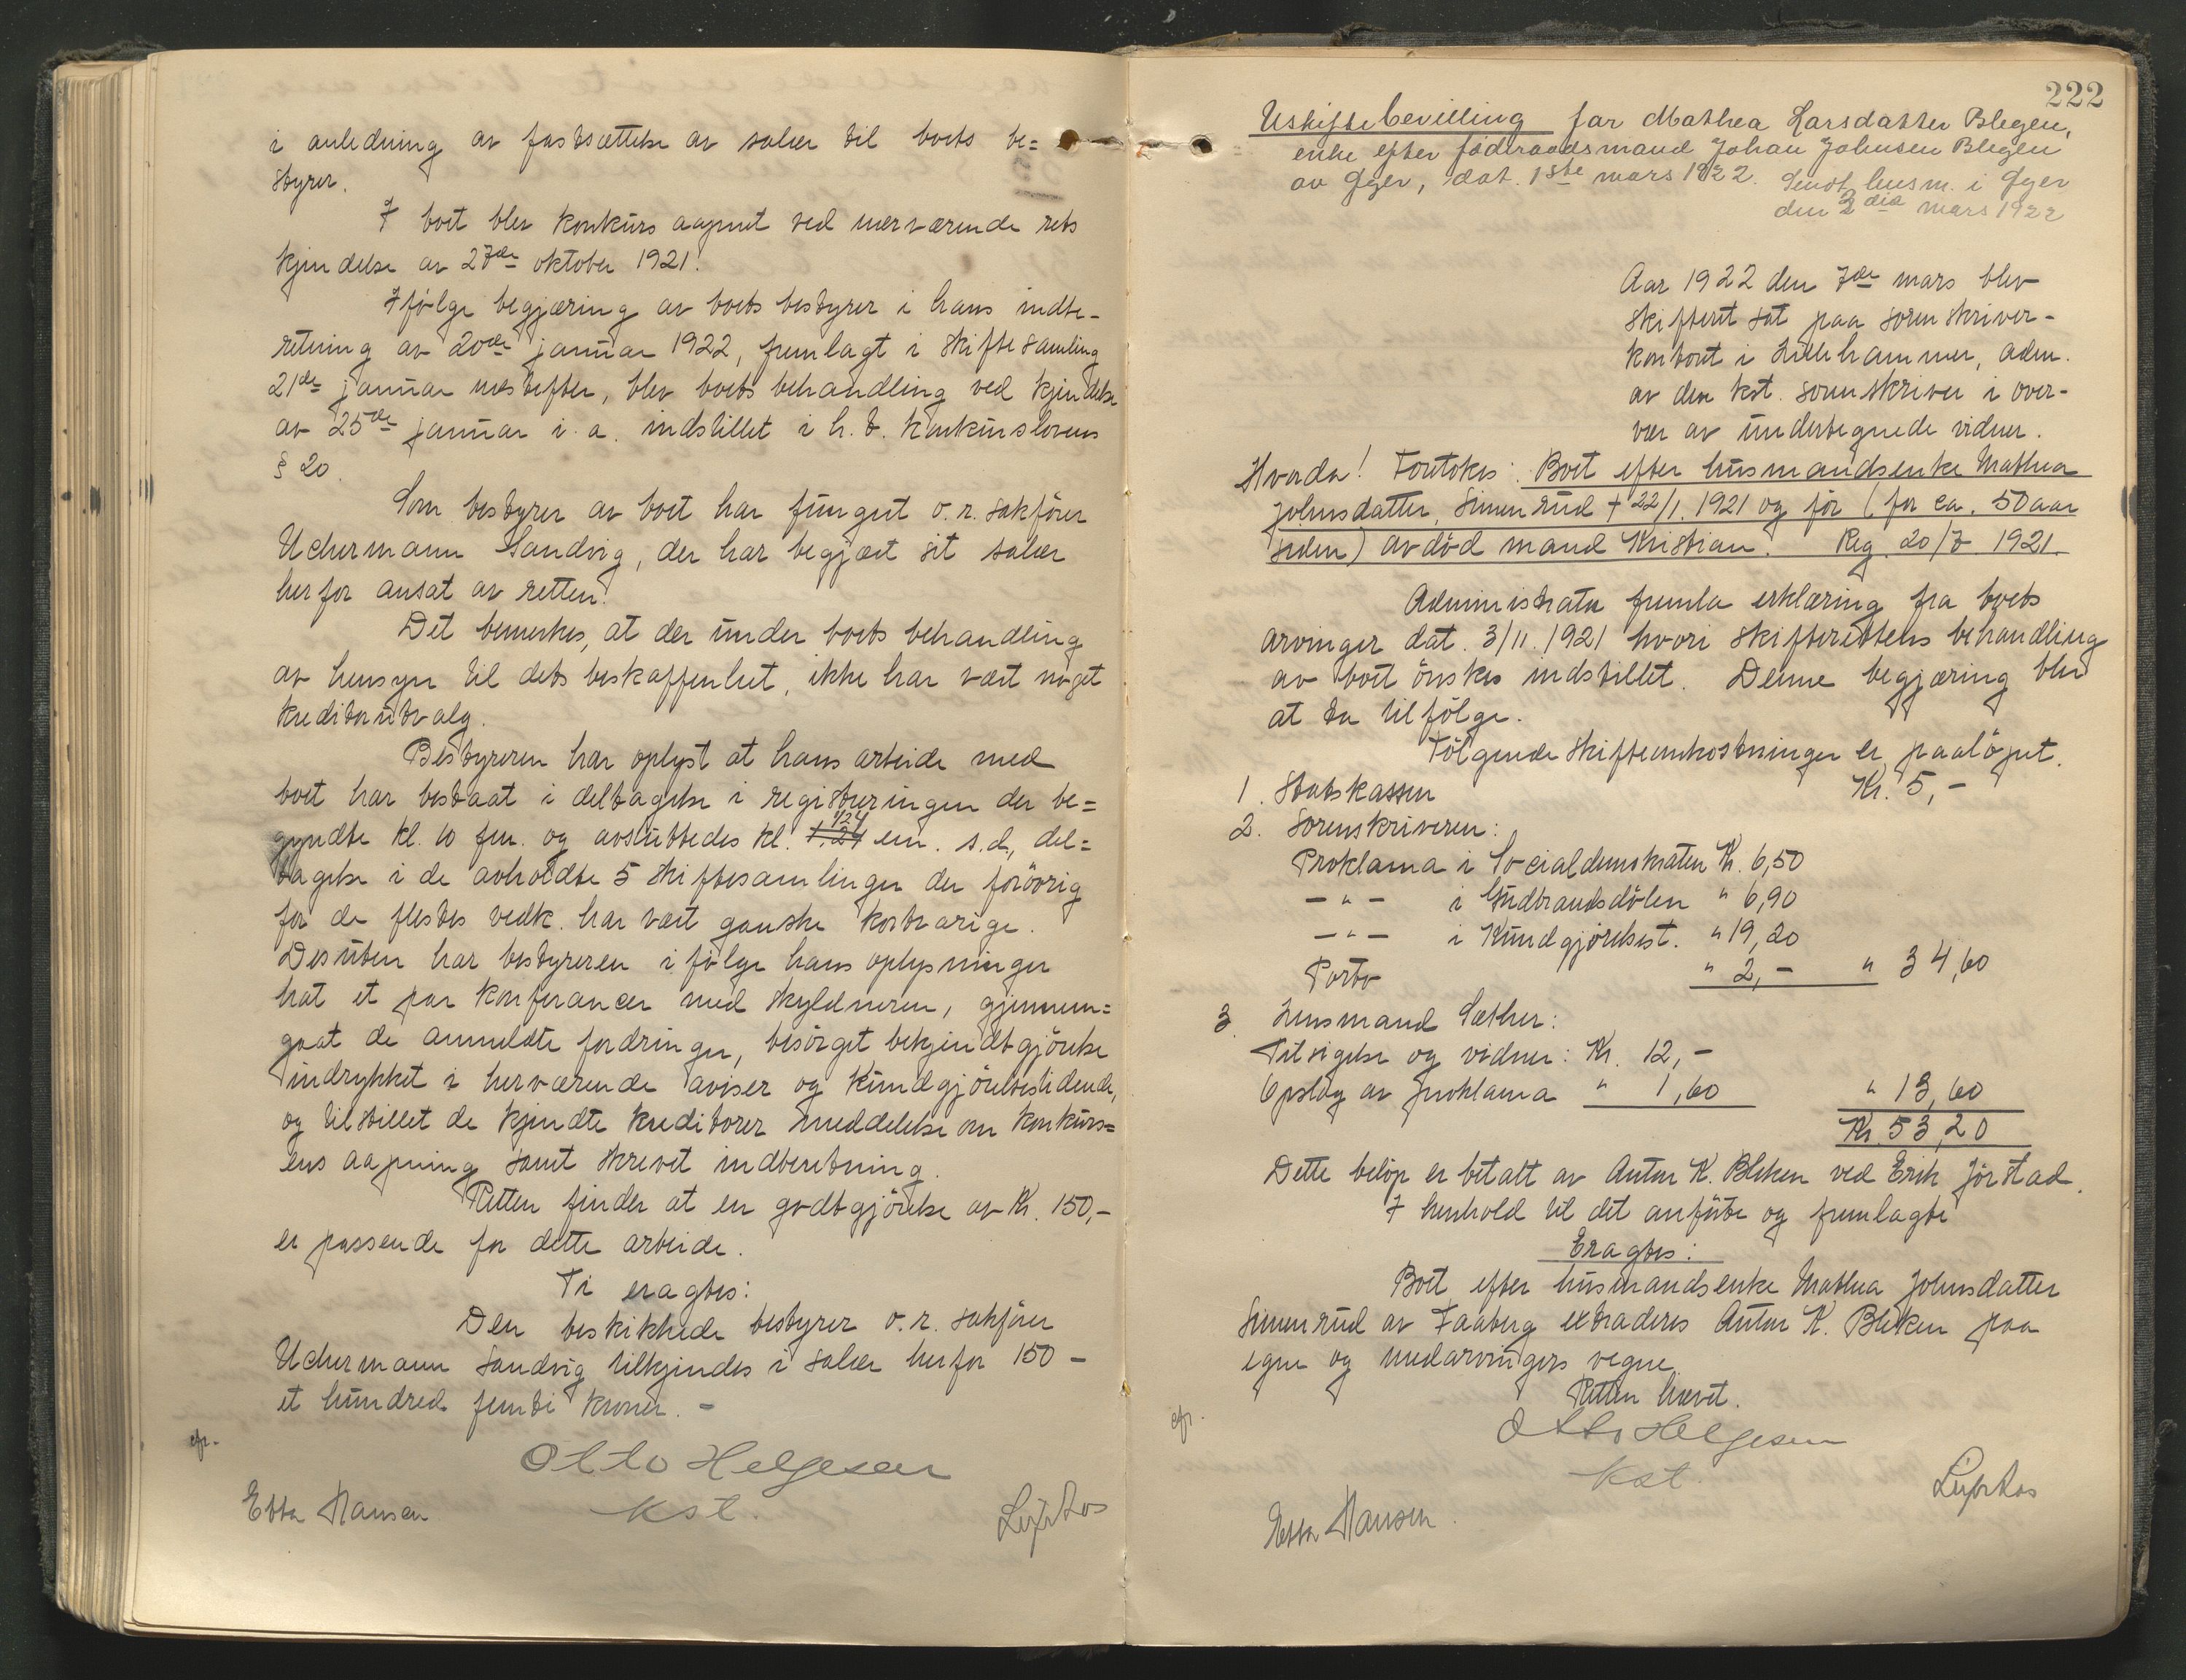 i anledning av fastsættelse av salær til boets be=
styrer.
I boet blev konkurs aapnet ved nærværende rets
kjendelse av 27de oktober 1921.
Ifølge begjæring av boets bestyrer i hans indbe-
retning av 20de januar 1922, fremlagt i skiftesamling
21de januar næstefter, blev boets behandling ved kjendelse
av 25de januar i. a. indstillet i h. t. konkurslovens
§ 20.
Som bestyrer av boet har fungert o. r. sakfører
Uchermann Sandvig, der har begjært sit salær
herfor ansat av retten.
Det bemerkes, at der under boets behandling
av hensyn til dets beskaffenhet, ikke har vært noget
kreditorutvalg.
Bestyreren har oplyst at hans arbeide med
boet har bestaat i deltagelse i registreringen der be=
gyndte kl. 10 fm. og avsluttedes kl. 1.24 124 em. s.d., del=
tagelse i de avholdte 5 skiftesamlinger der forøvrig
for de flestes vedk. har vært ganske kortvarige.
Desuten har bestyreren ifølge hans oplysninger
hat et par konferancer med skyldneren, gjennem=
gaat de anmeldte fordringer, besørget bekjendtgjørelse
indrykket i herværende aviser og Kundgjørelsestidende,
og tilstillet de kjendte kreditorer meddelelse om konkurs=
ens aapning samt skrevet indberetning.
Retten finder at en godtgjørelse av Kr. 150,-
er passende for dette arbeide.
Ti eragtes:
Den beskikkede bestyrer o. r. sakfører
Uchermann Sandvig tilkjendes i salær herfor 150 -
et hundred femti kroner. -
efr.
Otto Helgesen
Kst.
Ebba Hansen
222
Uskiftebevilling for Mathea Larsdatter Blegen,
enke efter føderaadsmand Johan Johnsen Blegen
av Øyer, dat. 1ste mars 1922. Sendt lensm. i Øyer
den 2den mars 1922
Aar 1922 den 7de mars blev
skifteret sat paa sorenskriver-
kontoret i Lillehammer, adm.
av den kst. sorenskriver i over-
vær av undertegnede vidner.
Hvorda! Foretokes: Boet efter husmandsenke Mathea
Johnsdatter, Simenrud + 22/1. 1921 og før (for ca. 50 aar
siden) avdød mand Kristian. Reg. 20/7 1921.
Administrator fremla erklæring fra boets
arvinger dat. 3/11. 1921 hvori skifterettens behandling
av boet ønskes indstillet. Denne begjæring blev
at ta tilfølge.
Følgende skifteomkostninger er paaløpet.
1. Statskassen Kr. 5,-
2. Sorenskriveren:
Proklama i Socialdemokraten Kr. 6,50
- " - i Gudbrandsdølen " 6,90
- " - i Kundgjørelsest. " 19,20
Porto " 2,- " 34,60
3. Lensmand Sæther:
Tilsigelse og vidner: Kr. 12,-
Opslag av proklama " 1,60 " 13,60
Kr 53,20
Dette beløp er betalt av Anton K. Bleken ved Erik Jørstad.
I henhold til det anførte og fremlagte
Eragtes:
Boet efter husmandsenke Mathea Johnsdatter
Simenrud av Faaberg extraderes Anton K. Bleken paa
egne og medarvingers vegne.
Retten hævet.
efr.
Otto Helgesen
Kst.
Ebba Hansen